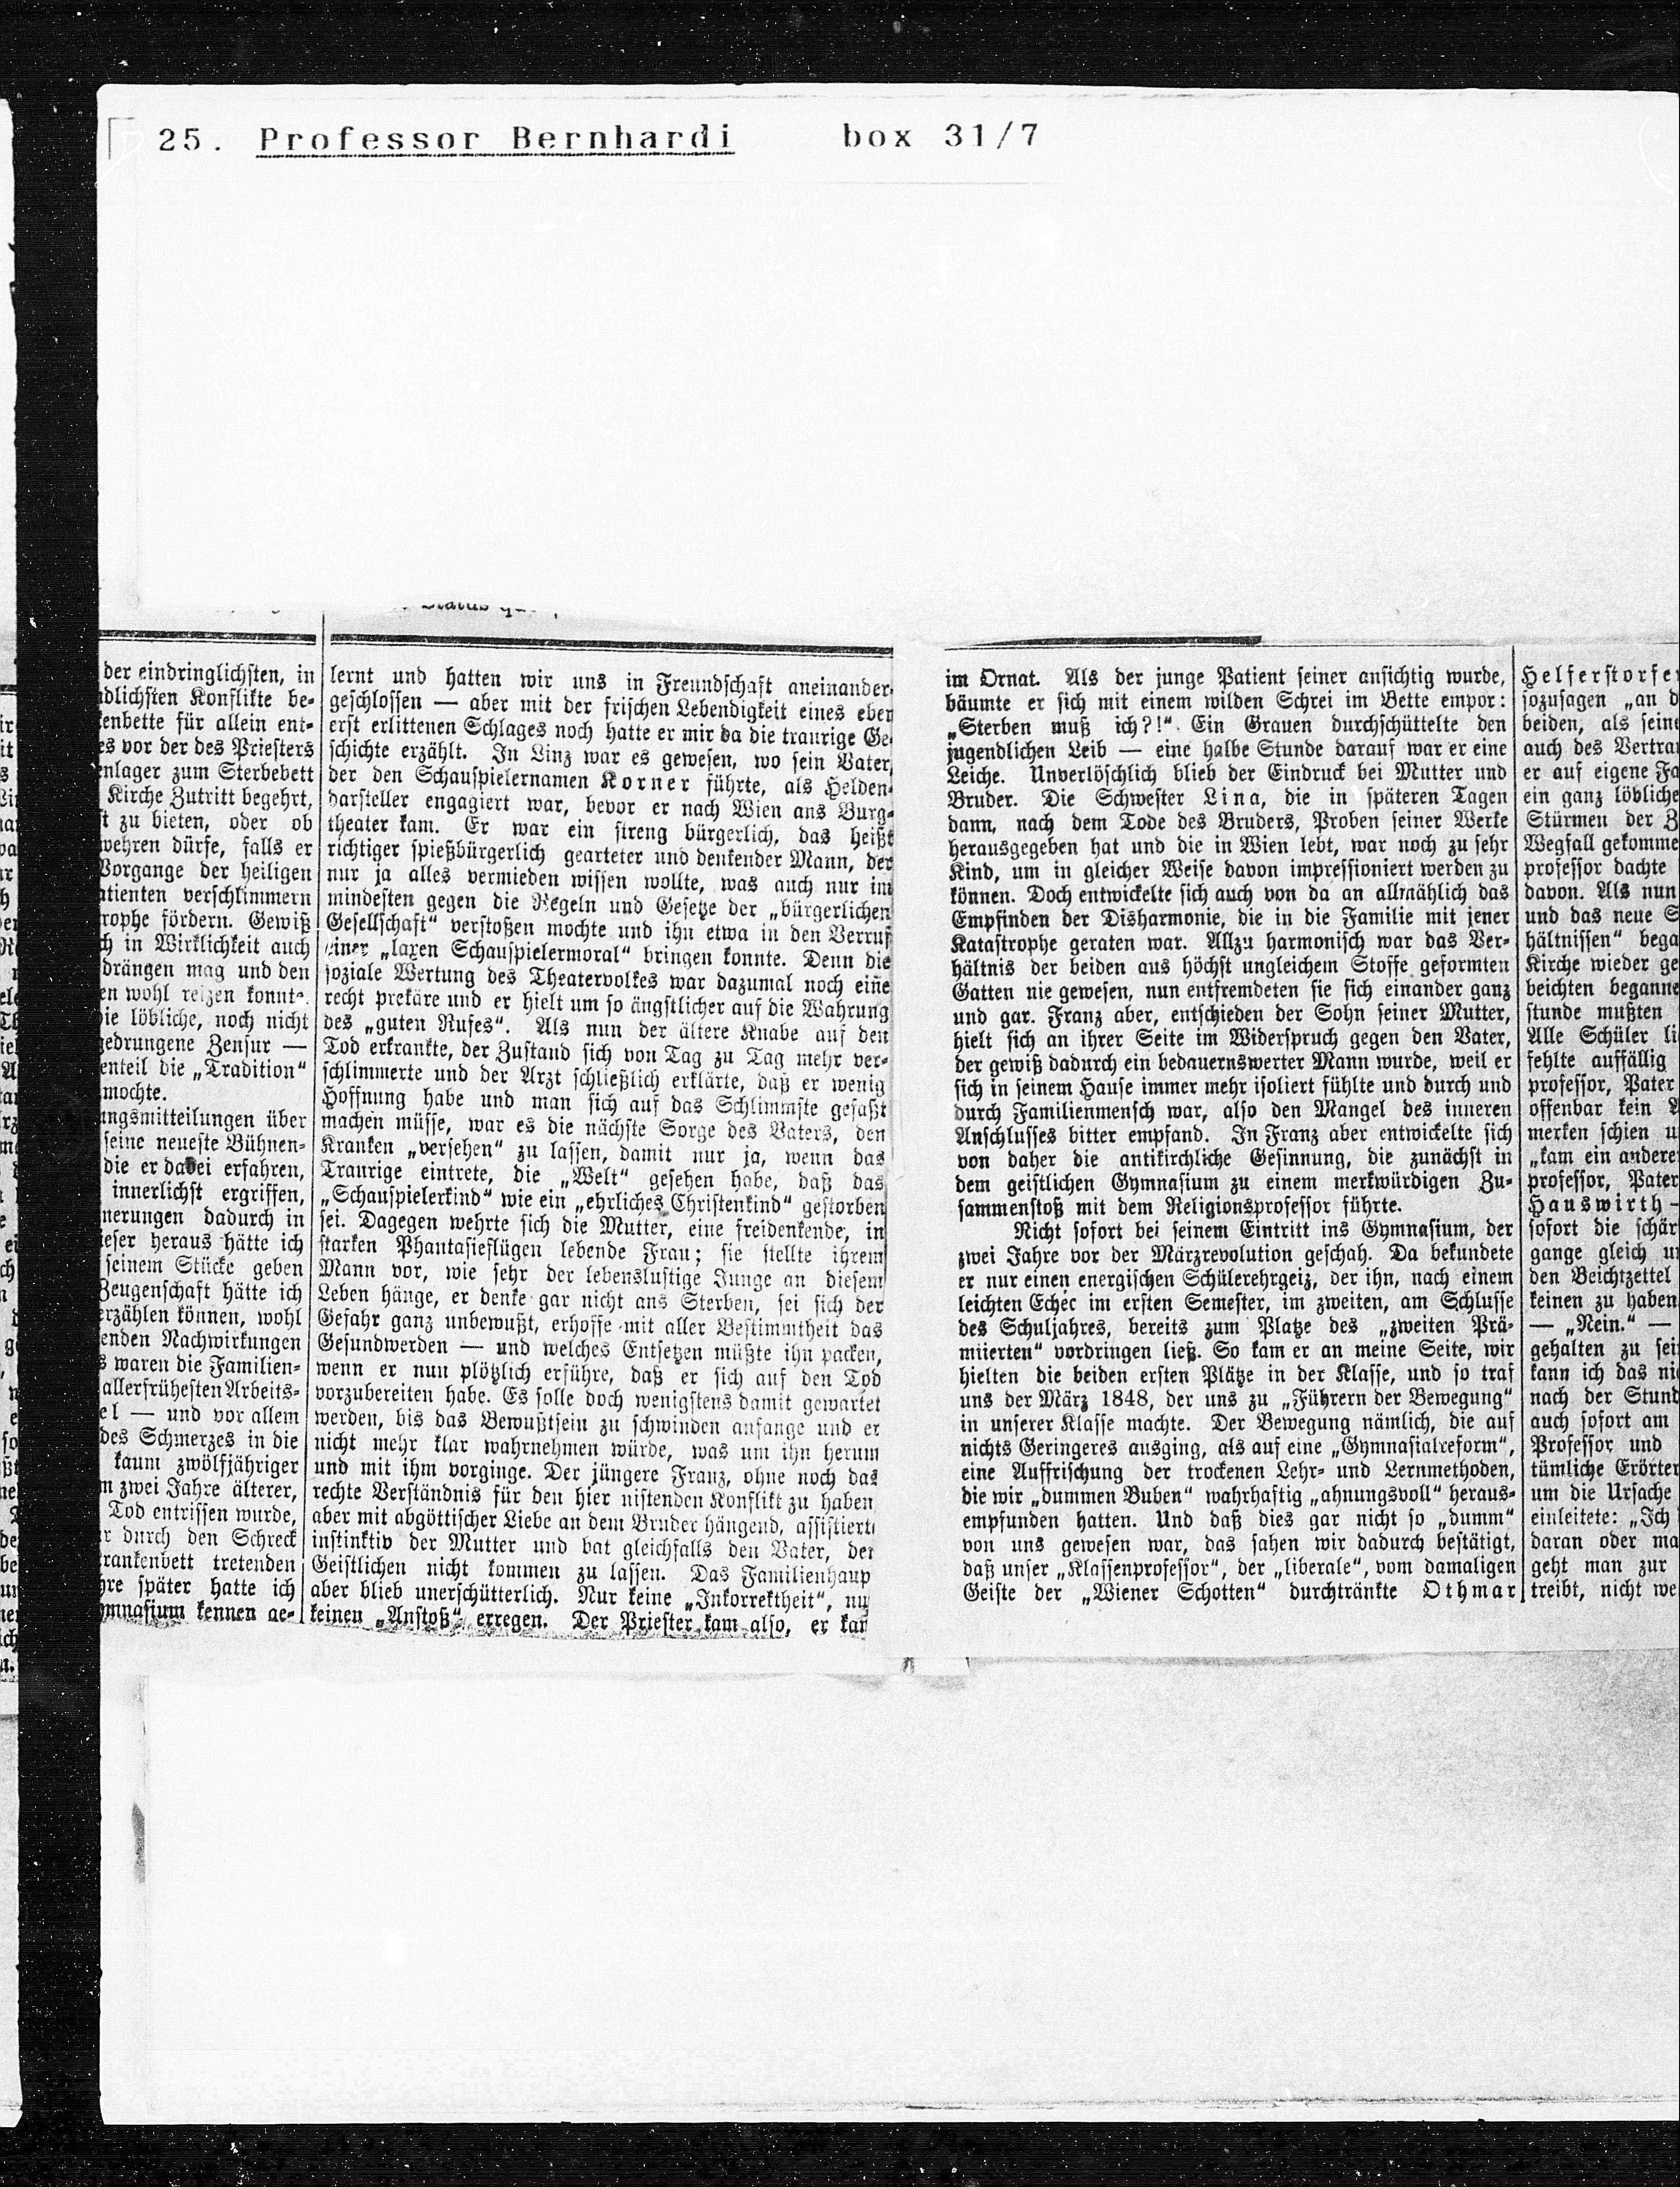 25. Professor Bernhardi box 31/7
der eindringlichsten, in
dlichsten Konflikte be-
kenbette für allein ent-
es vor der des Priesters
enlager zum Sterbebett
Kirche Zutritt begehrt,
t zu bieten, oder ob
wehren dürfe, falls er
Vorgange der heiligen
atienten verschlimmern
rophe fördern. Gewiß
ch in Wirklichkeit auch
drängen mag und den
en wohl reizen konnt
ie löbliche, noch nicht
gedrungene Zensur —
enteil die „Tradition"
mochte.
ngsmitteilungen über
seine neueste Bühnen-
die er dabei erfahren,
innerlichst ergriffen,
nerungen dadurch in
ieser heraus hätte ich
seinem Stücke geben
Zeugenschaft hätte ich
erzählen können, wohl
enden Nachwirkungen
s waren die Familien-
allerfrühesten Arbeits-
el — und vor allem
des Schmerzes in die
kaum zwölfjähriger
m zwei Jahre älterer,
Tod entrissen wurde,
r durch den Schreck
rankenbett tretenden
hre später hatte ich
ymnasium kennen ge-
lernt und hatten wir uns in Freundschaft aneinander-
geschlossen — aber mit der frischen Lebendigkeit eines eben
erst erlittenen Schlages noch hatte er mir da die traurige Ge-
schichte erzählt. In Linz war es gewesen, wo sein Vater,
der den Schauspielernamen Korner führte, als Helden-
darsteller engagiert war, bevor er nach Wien ans Burg-
theater kam. Er war ein streng bürgerlich, das heißt
richtiger spießbürgerlich gearteter und denkender Mann, der
nur ja alles vermieden wissen wollte, was auch nur im
mindesten gegen die Regeln und Gesetze der „bürgerlichen
Gesellschaft" verstoßen mochte und ihn etwa in den Verruf
einer „laxen Schauspielermoral" bringen konnte. Denn die
soziale Wertung des Theatervolkes war dazumal noch eine
recht prekäre und er hielt um so ängstlicher auf die Wahrung
des „guten Rufes". Als nun der ältere Knabe auf den
Tod erkrankte, der Zustand sich von Tag zu Tag mehr ver-
schlimmerte und der Arzt schließlich erklärte, daß er wenig
Hoffnung habe und man sich auf das Schlimmste gefaßt
machen müsse, war es die nächste Sorge des Vaters, den
Kranken „versehen" zu lassen, damit nur ja, wenn das
Traurige eintrete, die „Welt" gesehen habe, daß das
„Schauspielerkind" wie ein „ehrliches Christenkind" gestorben
sei. Dagegen wehrte sich die Mutter, eine freidenkende, in
starken Phantasieflügen lebende Frau; sie stellte ihrem
Mann vor, wie sehr der lebenslustige Junge an diesem
Leben hänge, er denke gar nicht ans Sterben, sei sich der
Gefahr ganz unbewußt, erhoffe mit aller Bestimmtheit das
Gesundwerden — und welches Entsetzen müßte ihn packen,
wenn er nun plötzlich erführe, daß er sich auf den Tod
vorzubereiten habe. Es solle doch wenigstens damit gewartet
werden, bis das Bewußtsein zu schwinden anfange und er
nicht mehr klar wahrnehmen würde, was um ihn herum
und mit ihm vorginge. Der jüngere Franz, ohne noch das
rechte Verständnis für den hier nistenden Konflikt zu haben,
aber mit abgöttischer Liebe an dem Bruder hängend, assistierte
instinktiv der Mutter und bat gleichfalls den Vater, den
Geistlichen nicht kommen zu lassen. Das Familienhaup
aber blieb unerschütterlich. Nur keine „Inkorrektheit", nu
keinen „Anstoß" erregen. Der Priester kam also, er kam
im Ornat. Als der junge Patient seiner ansichtig wurde,
bäumte er sich mit einem wilden Schrei im Bette empor:
„Sterben muß ich?!" Ein Grauen durchschüttelte den
jugendlichen Leib — eine halbe Stunde darauf war er eine
Leiche. Unverlöschlich blieb der Eindruck bei Mutter und
Bruder. Die Schwester Lina, die in späteren Tagen
dann, nach dem Tode des Bruders, Proben seiner Werke
herausgegeben hat und die in Wien lebt, war noch zu sehr
Kind, um in gleicher Weise davon impressioniert werden zu
können. Doch entwickelte sich auch von da an allmählich das
Empfinden der Disharmonie, die in die Familie mit jener
Katastrophe geraten war. Allzu harmonisch war das Ver-
hältnis der beiden aus höchst ungleichem Stoffe geformten
Gatten nie gewesen, nun entfremdeten sie sich einander ganz
und gar. Franz aber, entschieden der Sohn seiner Mutter,
hielt sich an ihrer Seite im Widerspruch gegen den Vater,
der gewiß dadurch ein bedauernswerter Mann wurde, weil er
sich in seinem Hause immer mehr isoliert fühlte und durch und
durch Familienmensch war, also den Mangel des inneren
Anschlusses bitter empfand. In Franz aber entwickelte sich
von daher die antikirchliche Gesinnung, die zunächst in
dem geistlichen Gymnasium zu einem merkwürdigen Zu-
sammenstoß mit dem Religionsprofessor führte.
Nicht sofort bei seinem Eintritt ins Gymnasium, der
zwei Jahre vor der Märzrevolution geschah. Da bekundete
er nur einen energischen Schülerehrgeiz, der ihn, nach einem
leichten Echec im ersten Semester, im zweiten, am Schlusse
des Schuljahres, bereits zum Platze des „zweiten Prä-
miierten" vordringen ließ. So kam er an meine Seite, wir
hielten die beiden ersten Plätze in der Klasse, und so traf
uns der März 1848, der uns zu „Führern der Bewegung"
in unserer Klasse machte. Der Bewegung nämlich, die auf
nichts Geringeres ausging, als auf eine „Gymnasialreform",
eine Auffrischung der trockenen Lehr- und Lernmethoden,
die wir „dummen Buben" wahrhaftig „ahnungsvoll" heraus-
empfunden hatten. Und daß dies gar nicht so „dumm"
von uns gewesen war, das sahen wir dadurch bestätigt,
daß unser „Klassenprofessor", der „liberale", vom damaligen
Geiste der „Wiener Schotten" durchtränkte Othmar
Helferstorfer
sozusagen „an d
beiden, als sein
auch des Vertra
er auf eigene Fa
ein ganz löbliche
Stürmen der Z
Wegfall gekomme
professor dachte
davon. Als nun
und das neue S
hältnissen" bega
Kirche wieder ge
beichten beganne
stunde mußten
Alle Schüler li
fehlte auffällig
professor, Pater
offenbar kein
merken schien u
„kam ein andere
professor, Pater
Hauswirth -
sofort die schär
gange gleich u
den Beichtzettel
keinen zu haben
— „Nein." —
gehalten zu sei
kann ich das ni
nach der Stund
auch sofort am
Professor und
tümliche Erörter
um die Ursache
einleitete: „Ich
daran oder ma
geht man zur
treibt, nicht we